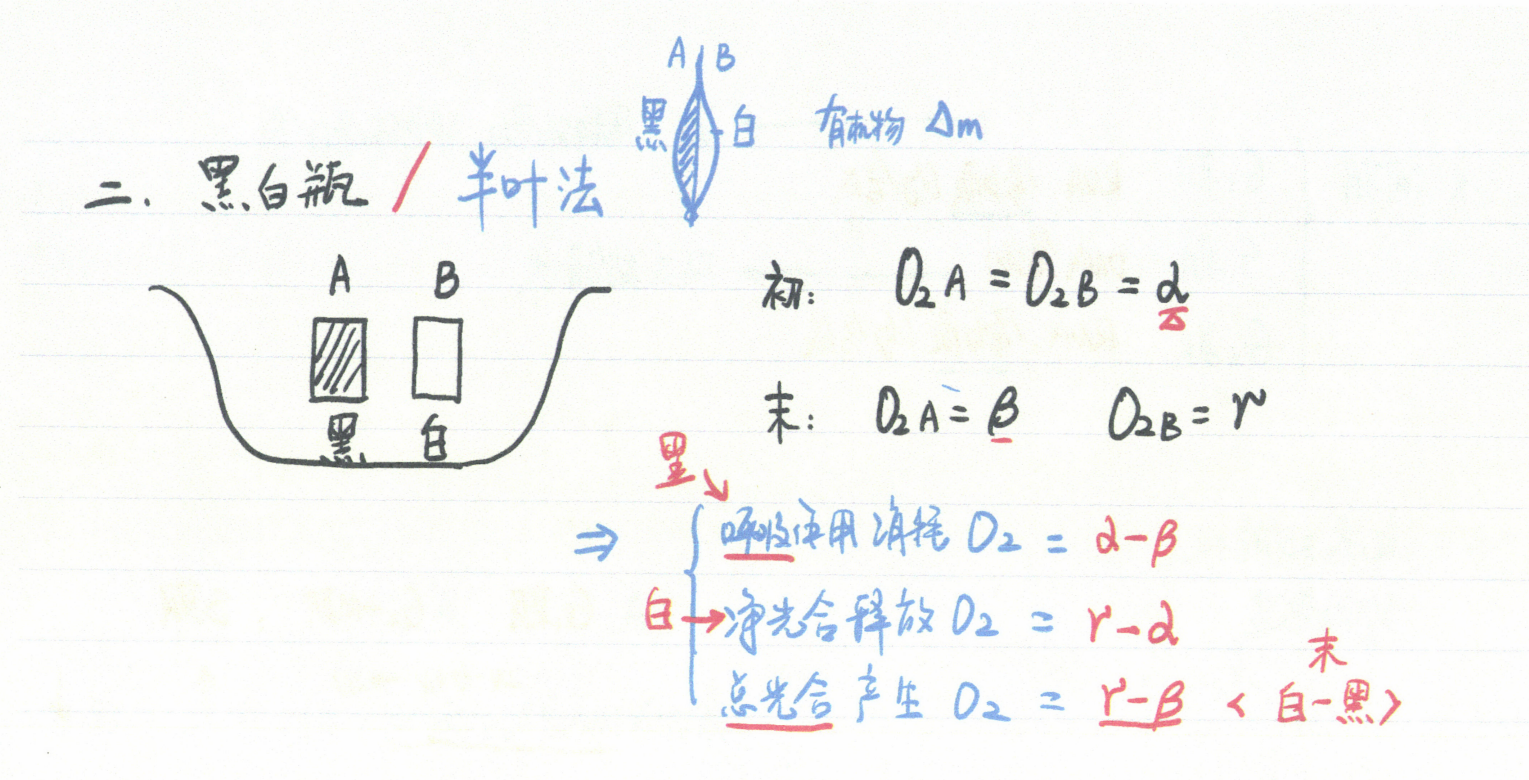 A B
黑 白 有机物 Δm
二. 黑白瓶 / 半叶法
A B
初: O₂A = O₂B = α
黑 白
末: O₂A = β O₂B = γ
黑
⇒ 呼吸作用消耗 O₂ = α-β
白 → 净光合释放 O₂ = γ-α
总光合产生 O₂ = γ-β <末 白-黑>